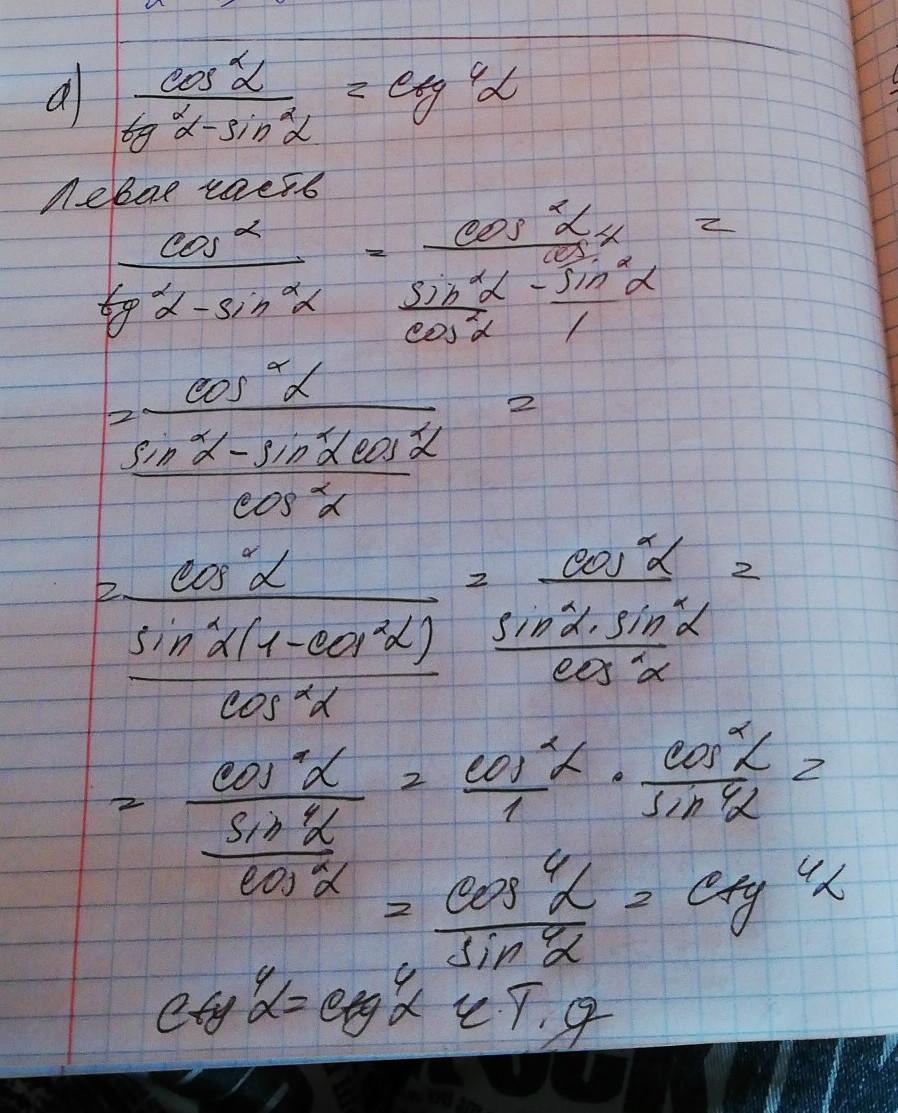 а) cos²α / (tg²α - sin²α) = ctg⁴α
Левая часть
cos² / (tg²α - sin²α) = cos²α / (sin²α/cos²α - sin²α/1) =
= cos²α / ((sin²α - sin²α cos²α)/cos²α) =
= cos²α / (sin²α(1 - cos²α)/cos²α) = cos²α / (sin²α · sin²α/cos²α) =
= cos²α / (sin⁴α/cos²α) = cos²α/1 · cos²α/sin⁴α =
= cos⁴α/sin⁴α = ctg⁴α
ctg⁴α = ctg⁴α ч.т.д